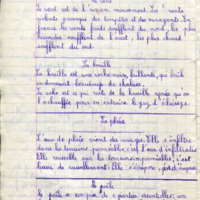 Le vent
Le vent est de l'air en mouvement. Les vents
violents provoquent des tempêtes et des ouragans. En
France les vents froids soufflent du nord, les plus
humides soufflent de l'ouest, les plus chauds
soufflent du sud.
La houille
La houille est une roche noire, brillante, qui brûle
en donnant beaucoup de chaleur.
Le coke est ce qui reste de la houille après qu'on
l'a chauffée pour en extraire le gaz d'éclairage.
La pluie
L'eau de pluie vient des nuages. Elle s'infiltre
dans les terrains perméables, c'est l'eau d'infiltration
Elle ruisselle sur les terrains imperméables, c'est
l'eau de ruissellement. Elle s'évapore